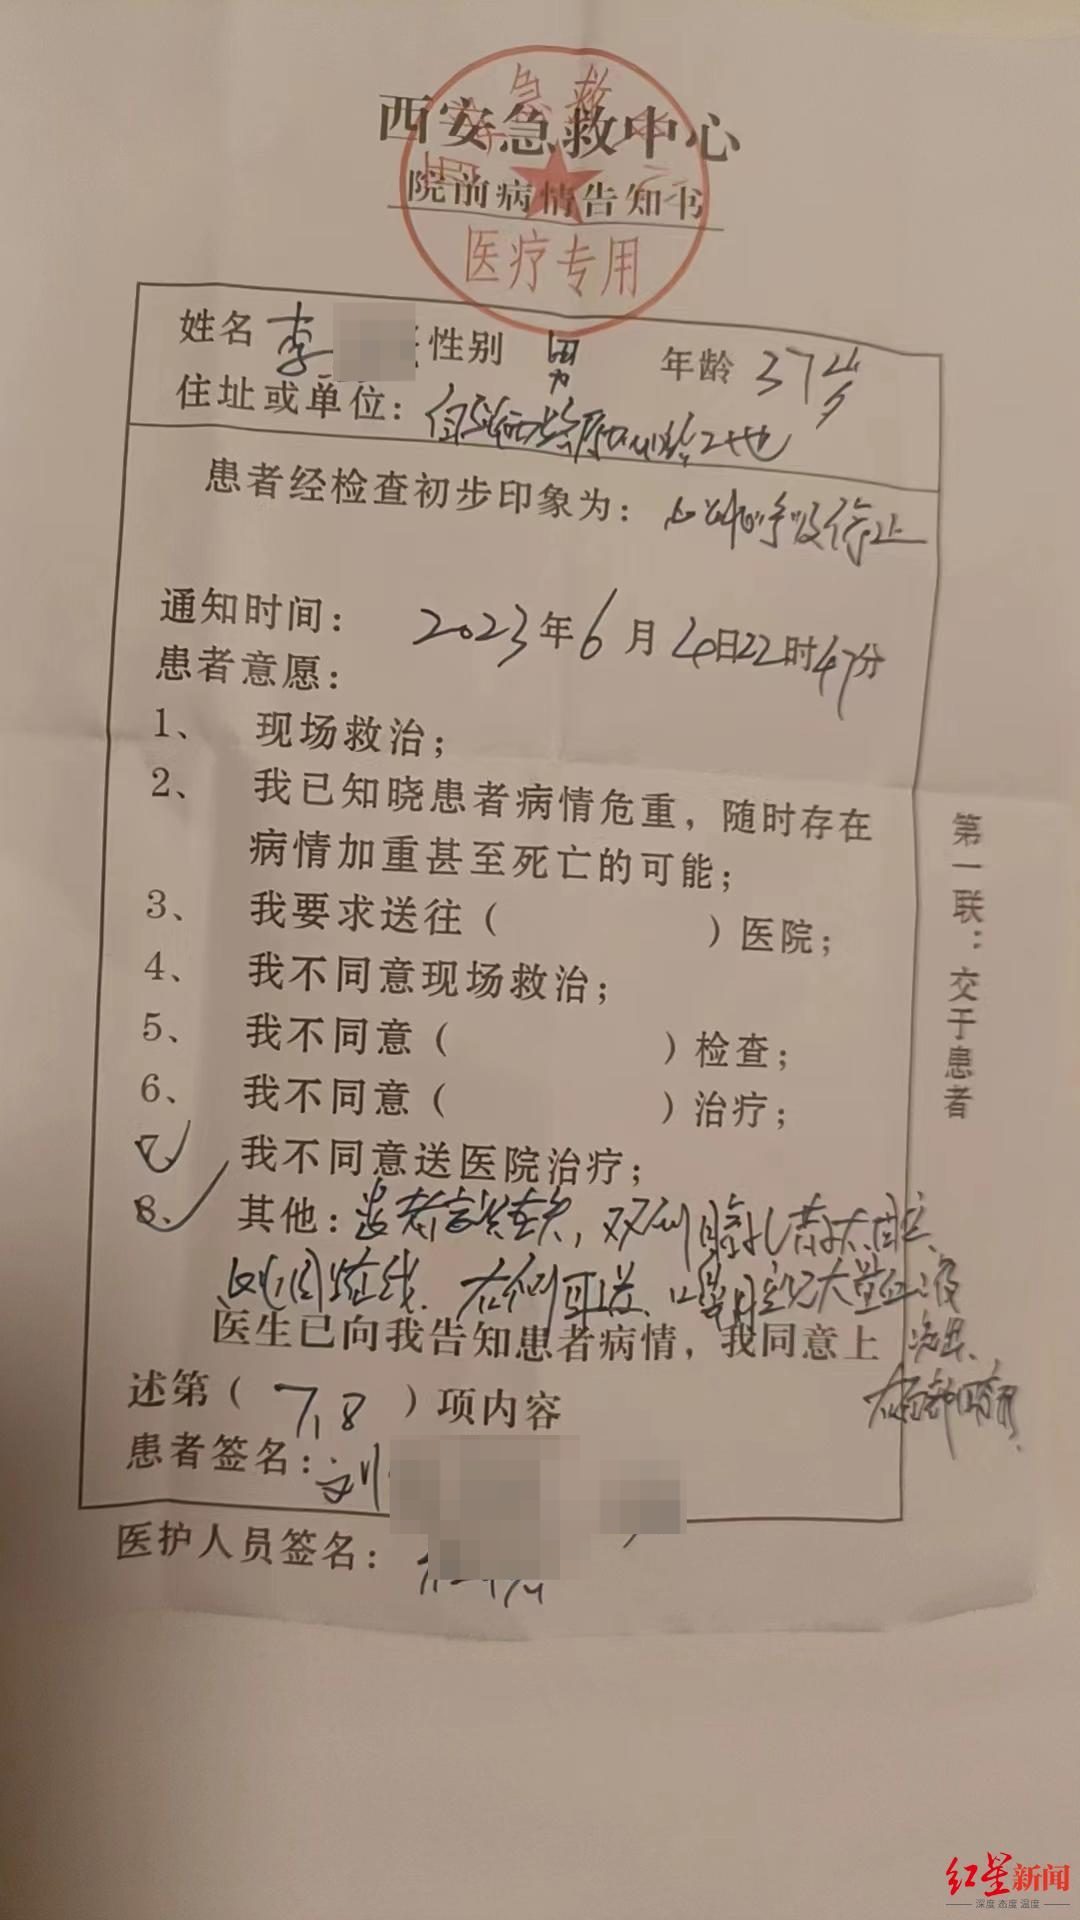 西安急救中心
院前病情告知书
急救
医疗专用
姓名 李 性别 男 年龄 37岁
住址或单位： 工地
患者经检查初步印象为：心跳呼吸停止
通知时间： 2023年6月4日22时47分
患者意愿：
1、 现场救治；
2、 我已知晓患者病情危重，随时存在
病情加重甚至死亡的可能；
3、 我要求送往（ ）医院；
4、 我不同意现场救治；
5、 我不同意（ ）检查；
6、 我不同意（ ）治疗；
7、 我不同意送医院治疗；
8、 其他：患者意识丧失，双侧瞳孔散大固定、
右侧耳道、口鼻腔见大量血液
流出、
医生已向我告知患者病情，我同意上
述第（ 7、8 ）项内容
患者签名：刘
医护人员签名：
第一联：交于患者
红星新闻
深度 态度 温度